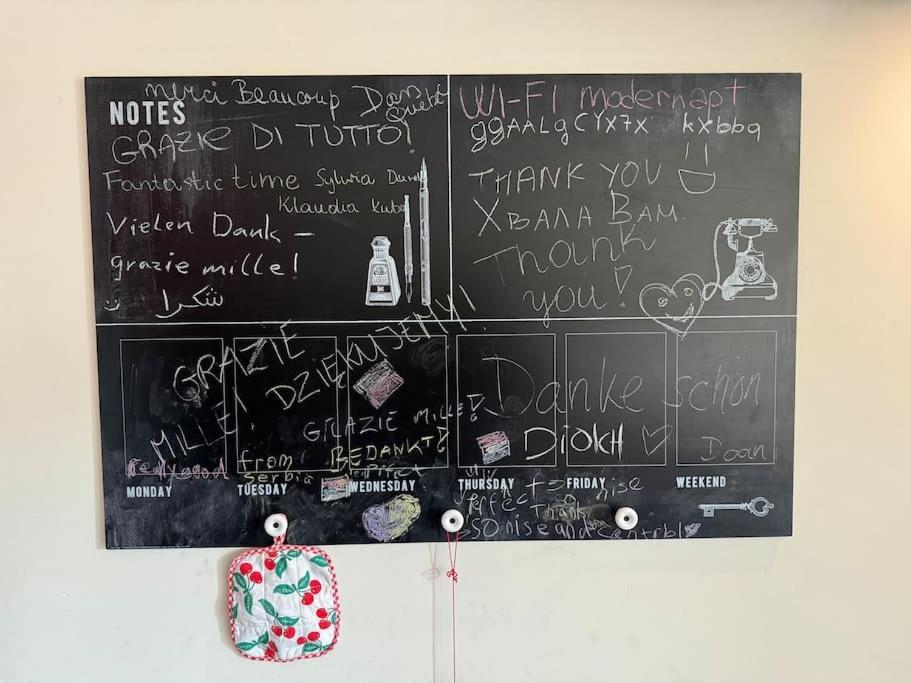 merci Beaucoup Dan
NOTES
GRAZIE DI TUTTO!
Fantastic time Sylwia
Klaudia Kuba
Vielen Dank –
grazie mille!
شكرا
WI-FI modernapt
ggAALgCYX7X kXbbq
THANK YOU
ХВАЛА ВАМ
Thank
you!
GRAZIE
MILLE!
DZIĘKUJEMY!
GRAZIE MILLE!
BEDANKT!
from
Serbia
Really good
Perfect
Danke schön
DIOKH
Doan
MONDAY
TUESDAY
WEDNESDAY
THURSDAY
FRIDAY
WEEKEND
nise
Perfect Thank
SO nise and